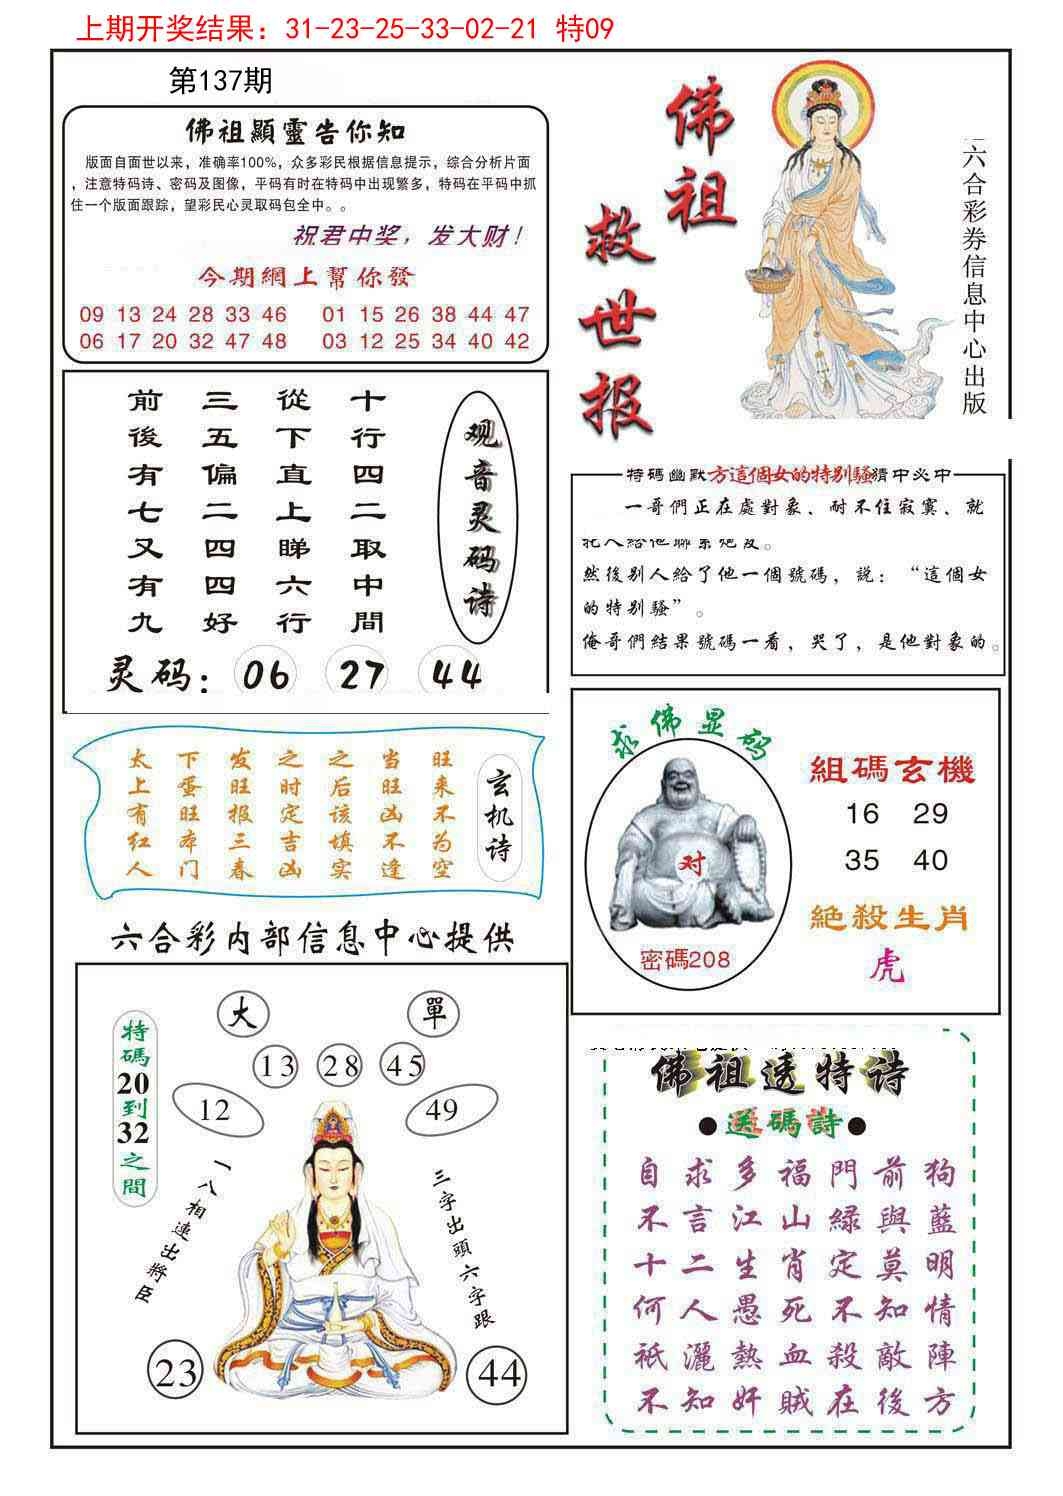 上期开奖结果：31-23-25-33-02-21 特09
第137期
佛祖顯靈告你知
版面自面世以来，准确率100%，众多彩民根据信息提示，综合分析片面
，注意特码诗、密码及图像，平码有时在特码中出现繁多，特码在平码中抓
住一个版面跟踪，望彩民心灵取码包全中。。
祝君中奖，发大财！
今期網上幫你發
09 13 24 28 33 46 01 15 26 38 44 47
06 17 20 32 47 48 03 12 25 34 40 42
佛祖
救世报
六合彩券信息中心出版
前三從十
後五下行
有偏直四
七二上二
又四睇取
有四六中
九好行間
观音灵码诗
灵码：06 27 44
特碼幽默方這個女的特别騷猜中必中
一哥們正在處對象、耐不住寂寞、就
托人給他聯系炮友。
然後别人給了他一個號碼，説：“這個女
的特别騷”。
俺哥們結果號碼一看，哭了，是他對象的。
太下发之之当旺
上蛋旺时后旺来
有旺报定该凶不
红本三吉填不为
人门春凶实逢空
玄机诗
求佛显码
对
密碼208
組碼玄機
16 29
35 40
絕殺生肖
虎
六合彩内部信息中心提供
特碼20到32之間
大 單
13 28 45
12 49
一八相連出將臣
三字出頭六字跟
23 44
佛祖透特诗
●送碼詩●
自求多福門前狗
不言江山緑與藍
十二生肖定莫明
何人愚死不知情
衹灑熱血殺敵陣
不知奸賊在後方